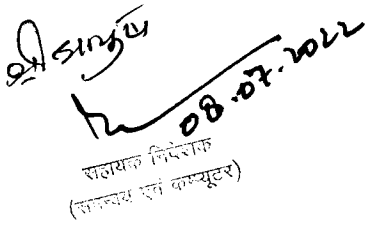 08.07.2022
सहायक निदेशक
(समन्वय एवं कम्प्यूटर)